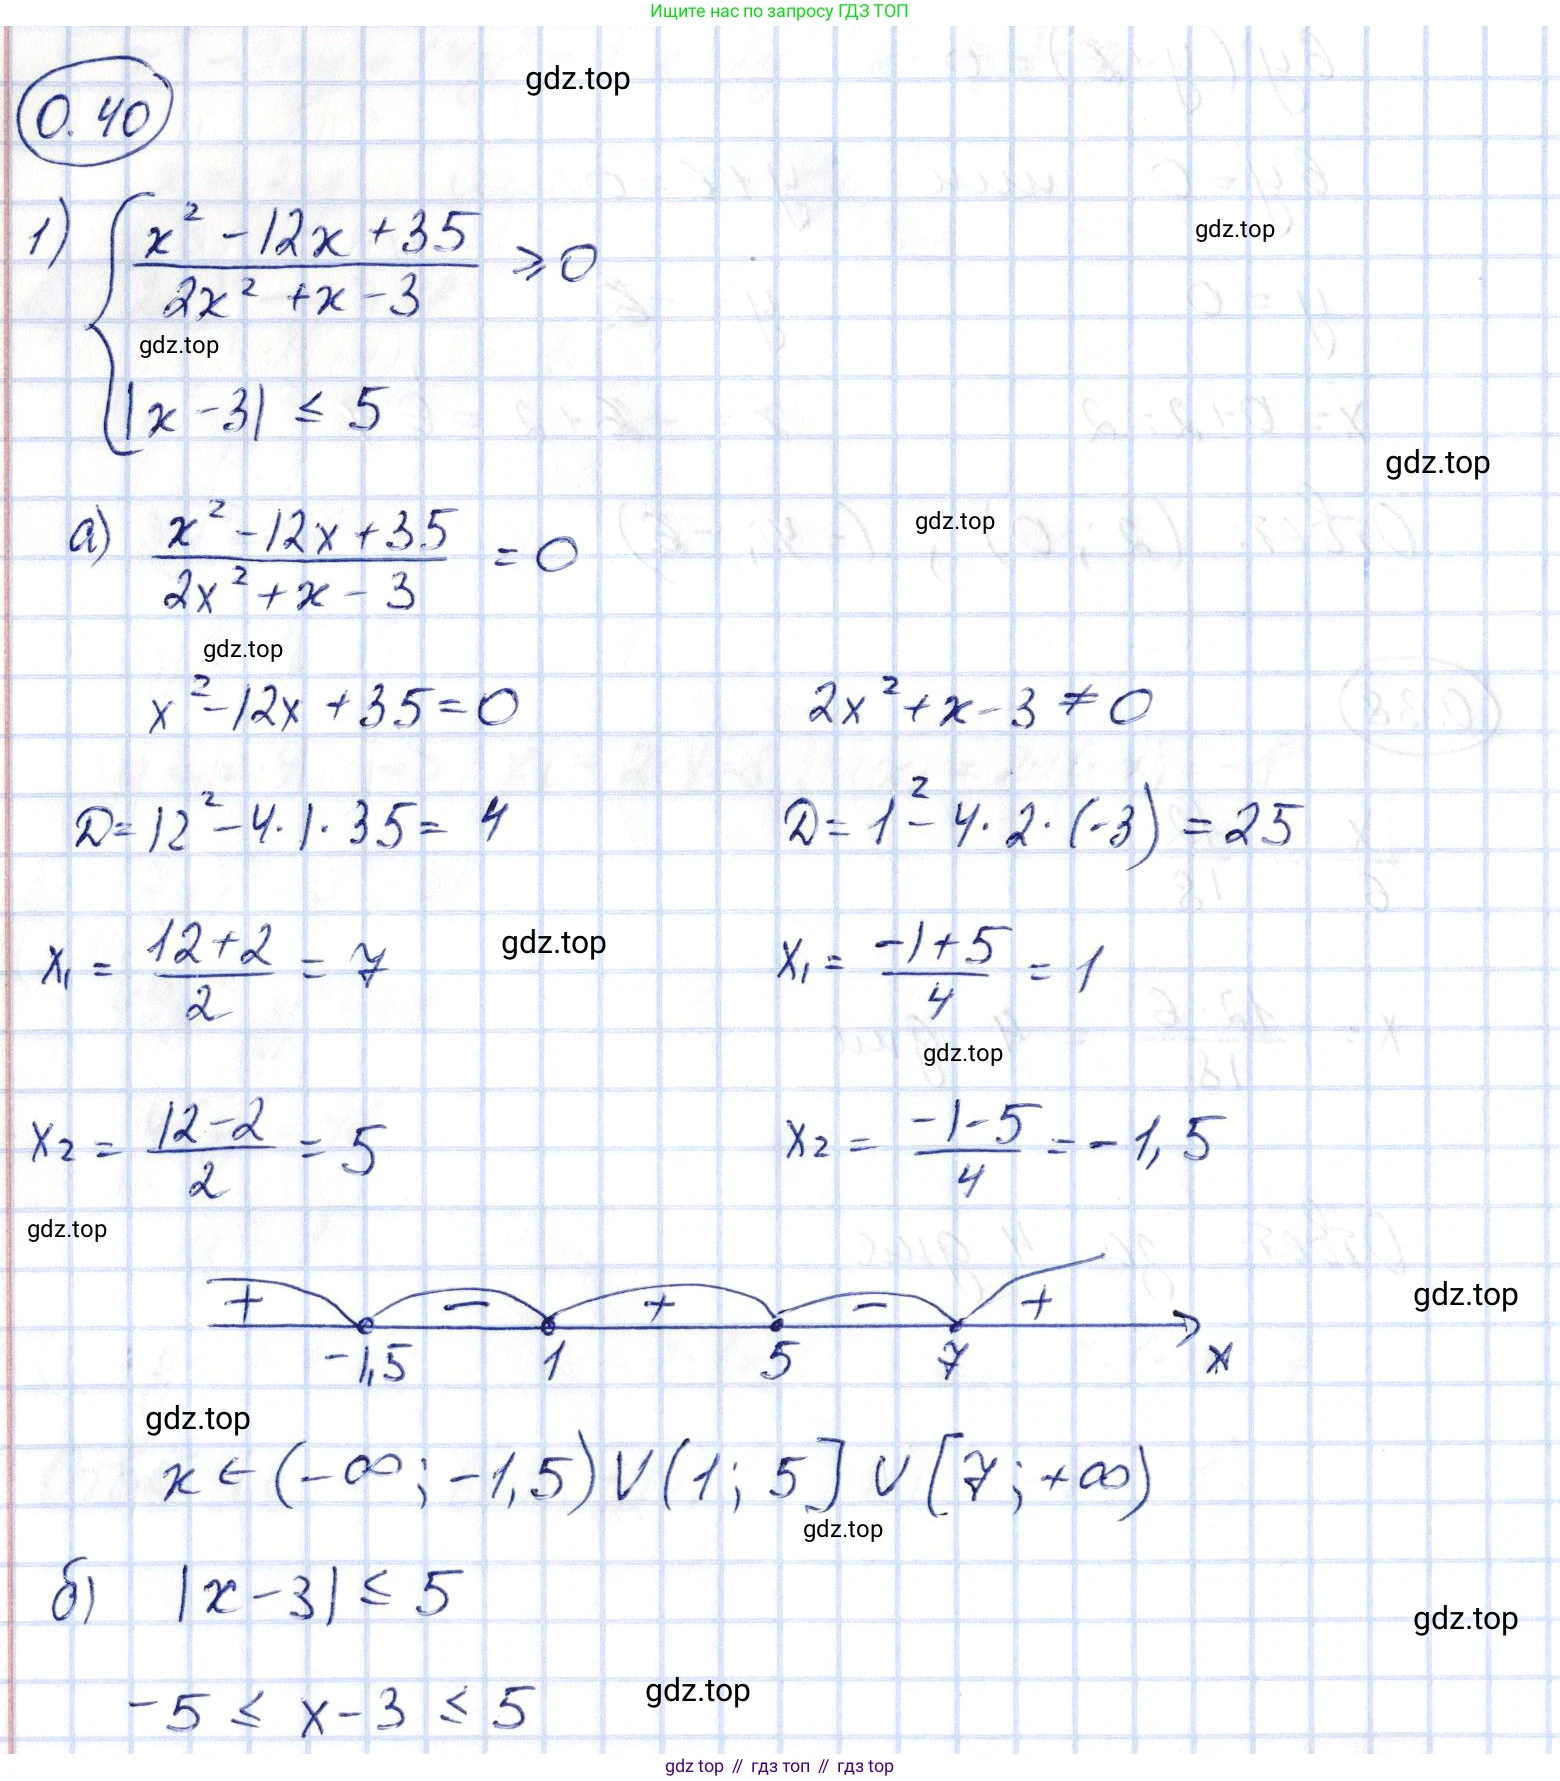 Ищите нас по запросу ГДЗ ТОП
gdz.top
0.40
1) { (x² - 12x + 35)/(2x² + x - 3) ⩾ 0
gdz.top
gdz.top
|x - 3| ≤ 5
gdz.top
gdz.top
а) (x² - 12x + 35)/(2x² + x - 3) = 0
gdz.top
x² - 12x + 35 = 0 2x² + x - 3 ≠ 0
D = 12² - 4·1·35 = 4 D = 1² - 4·2·(-3) = 25
x₁ = (12 + 2)/2 = 7 gdz.top x₁ = (-1 + 5)/4 = 1
gdz.top
x₂ = (12 - 2)/2 = 5 x₂ = (-1 - 5)/4 = -1,5
gdz.top
gdz.top
+ - + - +
-1,5 1 5 7 x
gdz.top
x ∈ (-∞; -1,5) ∪ (1; 5] ∪ [7; +∞)
gdz.top
б) |x - 3| ≤ 5
gdz.top
-5 ≤ x - 3 ≤ 5
gdz.top
gdz top // гдз топ // гдз top